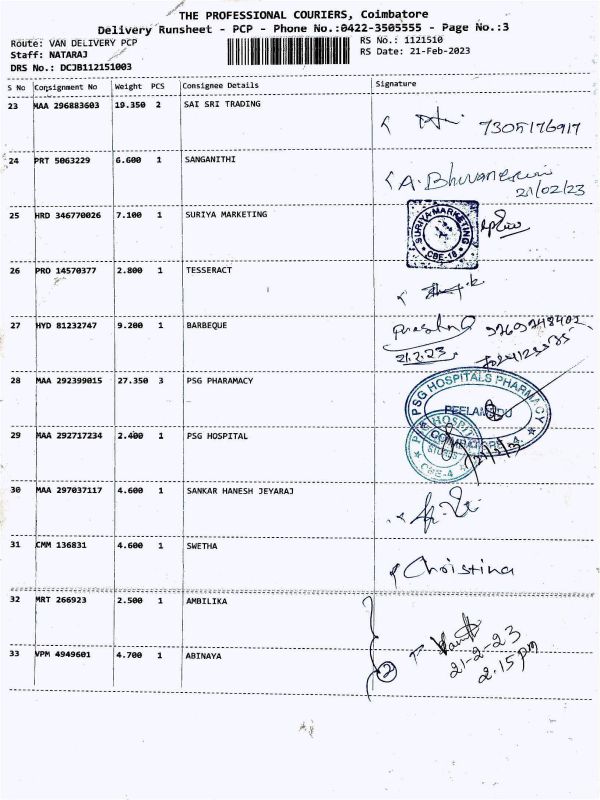 THE PROFESSIONAL COURIERS, Coimbatore
Delivery Runsheet - PCP - Phone No.:0422-3505555 - Page No.:3
Route: VAN DELIVERY PCP
RS No.: 1121510
Staff: NATARAJ
RS Date: 21-Feb-2023
DRS No.: DCJB112151003
S No Consignment No Weight PCS Consignee Details Signature
23 MAA 296883603 19.350 2 SAI SRI TRADING
7305176917
24 PRT 5063229 6.600 1 SANGANITHI
A. Bhuvaneswari
21/02/23
25 HRD 346770026 7.100 1 SURIYA MARKETING
SURIYA MARKETING
CBE-18
26 PRO 14570377 2.800 1 TESSERACT
27 HYD 81232747 9.200 1 BARBEQUE
21.2.23
28 MAA 292399015 27.350 3 PSG PHARAMACY
PSG HOSPITALS PHARMACY
PEELAMEDU
29 MAA 292717234 2.400 1 PSG HOSPITAL
PSG HOSPITALS
STORES
CBE-4
30 MAA 297037117 4.600 1 SANKAR HANESH JEYARAJ
31 CMM 136831 4.600 1 SWETHA
Christina
32 MRT 266923 2.500 1 AMBILIKA
21-2-23
2.15pm
33 VPM 4949601 4.700 1 ABINAYA
2